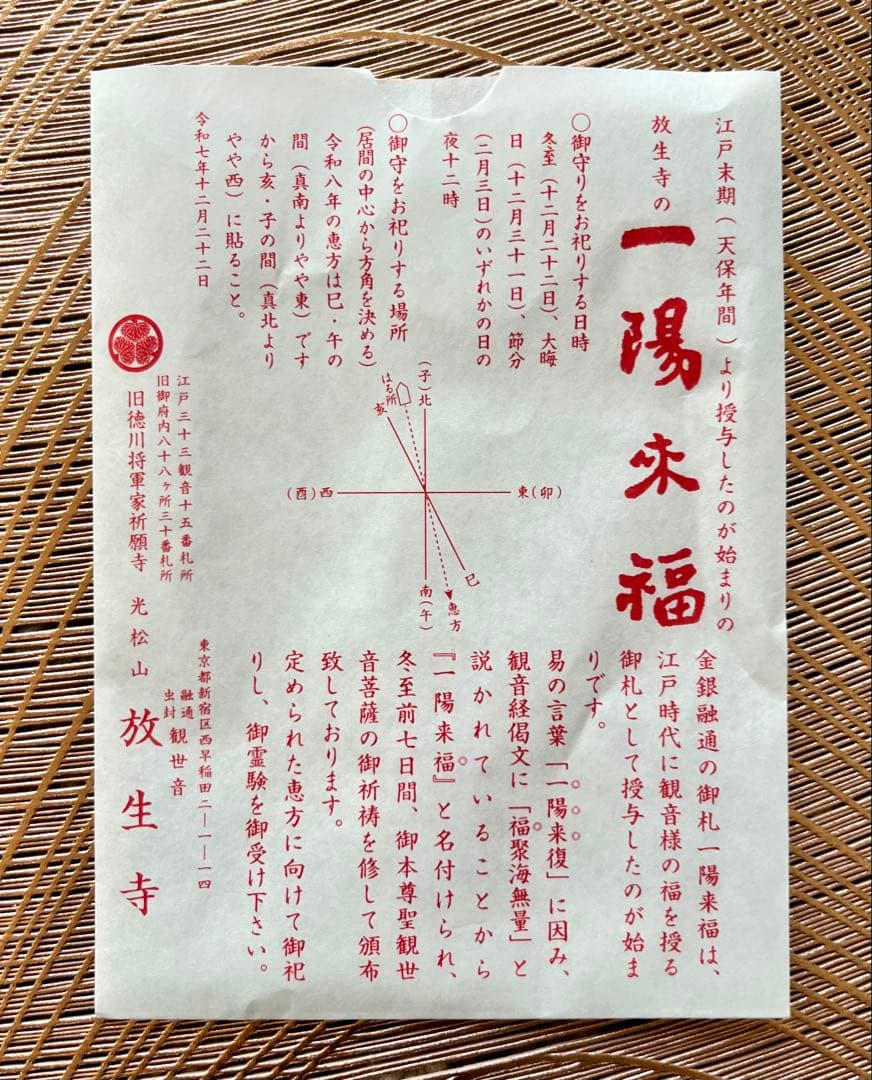 江戸末期(天保年間)より授与したのが始まりの
放生寺の
一陽来福
○御守りをお祀りする日時
冬至(十二月二十二日)、大晦
日(十二月三十一日)、節分
(二月三日)のいずれかの日の
夜十二時
○御守をお祀りする場所
(居間の中心から方角を決める)
令和八年の恵方は巳・午の
間(真南よりやや東)です
から亥・子の間(真北より
やや西)に貼ること。
令和七年十二月二十二日
(子)北
はる所
亥
(酉)西
東(卯)
巳
南(午)
恵方
金銀融通の御札一陽来福は、
江戸時代に観音様の福を授る
御札として授与したのが始ま
りです。
易の言葉「一陽来復」に因み、
観音経偈文に「福聚海無量」と
説かれていることから
『一陽来福』と名付けられ、
冬至前七日間、御本尊聖観世
音菩薩の御祈祷を修して頒布
致しております。
定められた恵方に向けて御祀
りし、御霊験を御受け下さい。
江戸三十三観音十五番札所
旧御府内八十八ヶ所三十番札所
旧徳川将軍家祈願寺 光松山 放生寺
東京都新宿区西早稲田二―一―一四
融通
虫封
観世音